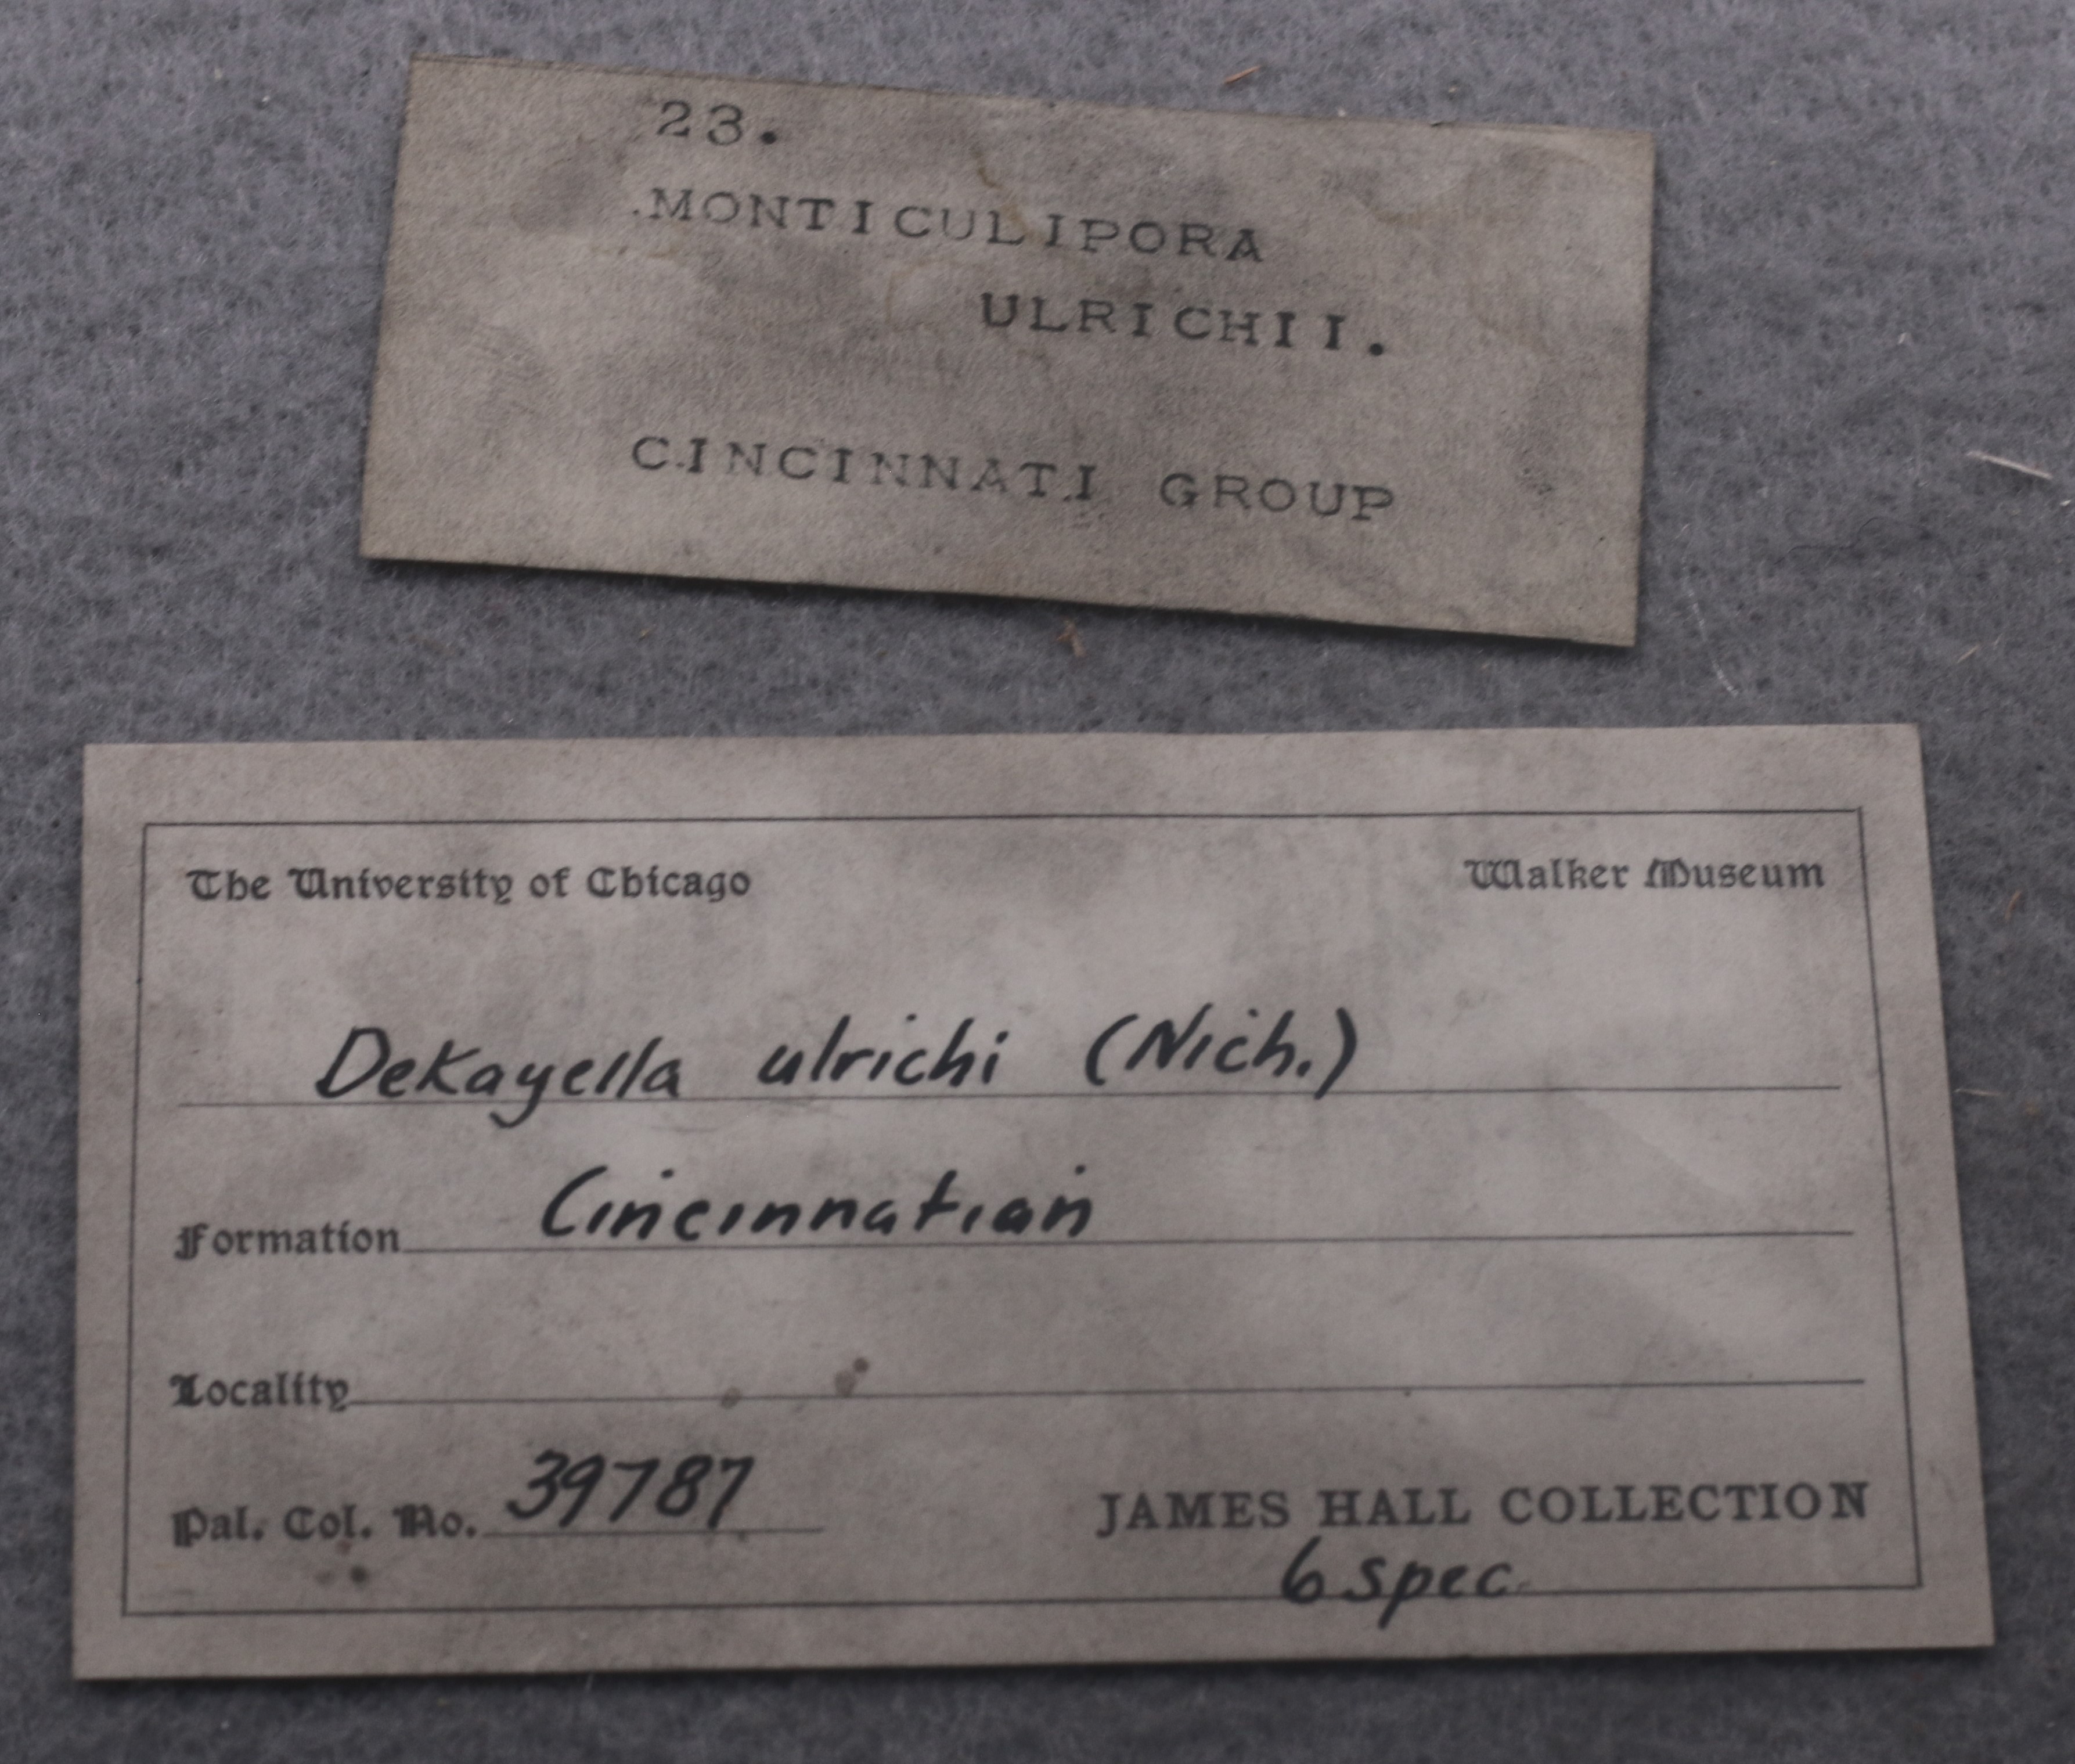 23.
MONTICULIPORA
ULRICHII.
CINCINNATI GROUP
The University of Chicago Walker Museum
Dekayella ulrichi (Nich.)
Formation Cincinnatian
Locality
Pal. Col. No. 39787 JAMES HALL COLLECTION
6 spec.